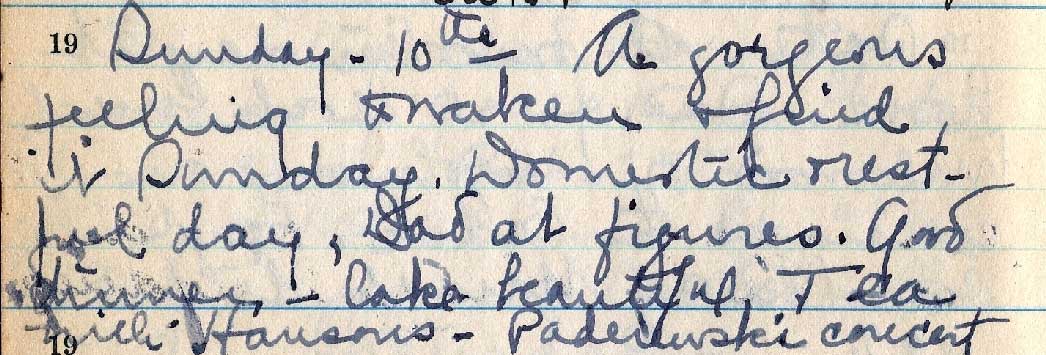 19 Sunday - 10th A gorgeous
feeling to waken & find
it Sunday. Domestic & rest-
ful day, Dad at figures. Good
dinner - lake beautiful. Tea
19 with Hansons - Paderewski concert